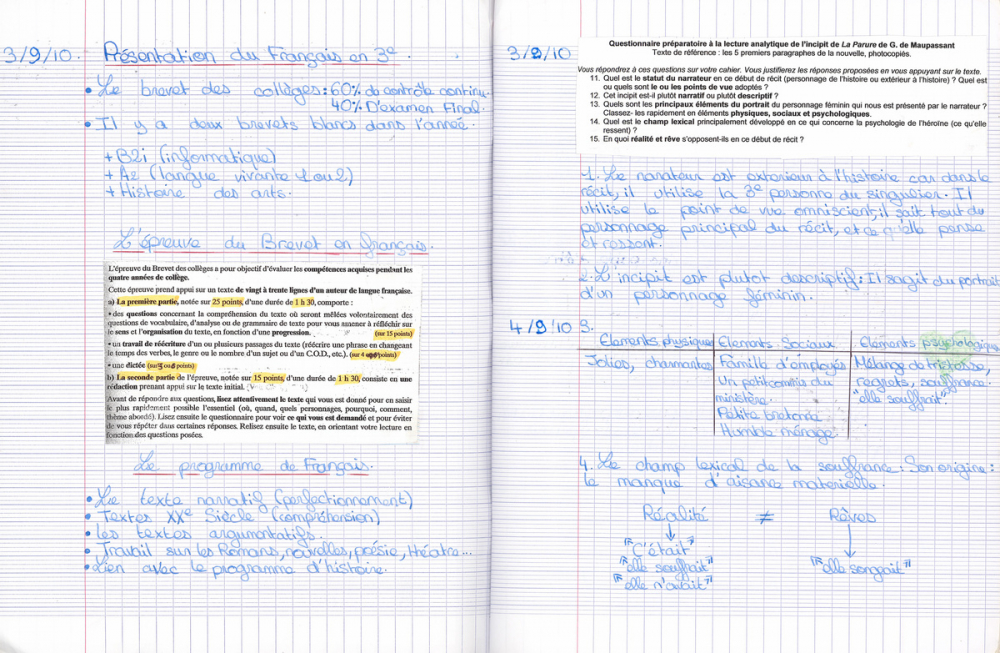 3/9/10. Présentation du Français en 3e
• Le brevet des collèges : 60% de contrôle continu.
40% D'examen Final.
• Il y a deux brevets blancs dans l'année.
+ B2i (informatique)
+ A2 (langue vivante 1 ou 2)
+ Histoire des arts.
L'épreuve du Brevet en français.
L'épreuve du Brevet des collèges a pour objectif d'évaluer les compétences acquises pendant les
quatre années de collège.
Cette épreuve prend appui sur un texte de vingt à trente lignes d'un auteur de langue française.
a) La première partie, notée sur 25 points, d'une durée de 1 h 30, comporte :
• des questions concernant la compréhension du texte où seront mêlées volontairement des
questions de vocabulaire, d'analyse ou de grammaire de texte pour vous amener à réfléchir sur
le sens et l'organisation du texte, en fonction d'une progression. (sur 15 points)
• un travail de réécriture d'un ou plusieurs passages du texte (réécrire une phrase en changeant
le temps des verbes, le genre ou le nombre d'un sujet ou d'un C.O.D., etc.). (sur 4 points)
• une dictée (sur points)
b) La seconde partie de l'épreuve, notée sur 15 points, d'une durée de 1 h 30, consiste en une
rédaction prenant appui sur le texte initial.
Avant de répondre aux questions, lisez attentivement le texte qui vous est donné pour en saisir
le plus rapidement possible l'essentiel (où, quand, quels personnages, pourquoi, comment,
thème abordé). Lisez ensuite le questionnaire pour voir ce qui vous est demandé et pour éviter
de vous répéter dans certaines réponses. Relisez ensuite le texte, en orientant votre lecture en
fonction des questions posées.
Le programme de Français.
• Le texte narratif (perfectionnement)
• Textes XXe Siècle (compréhension)
• Les textes argumentatifs.
• Travail sur les Romans, nouvelles, poésie, théatre...
• Lien avec le programme d'histoire.
3/9/10
Questionnaire préparatoire à la lecture analytique de l'incipit de La Parure de G. de Maupassant
Texte de référence : les 5 premiers paragraphes de la nouvelle, photocopiés.
Vous répondrez à ces questions sur votre cahier. Vous justifierez les réponses proposées en vous appuyant sur le texte.
11. Quel est le statut du narrateur en ce début de récit (personnage de l'histoire ou extérieur à l'histoire) ? Quel est
ou quels sont le ou les points de vue adoptés ?
12. Cet incipit est-il plutôt narratif ou plutôt descriptif ?
13. Quels sont les principaux éléments du portrait du personnage féminin qui nous est présenté par le narrateur ?
Classez- les rapidement en éléments physiques, sociaux et psychologiques.
14. Quel est le champ lexical principalement développé en ce qui concerne la psychologie de l'héroïne (ce qu'elle
ressent) ?
15. En quoi réalité et rêve s'opposent-ils en ce début de récit ?
1. Le narrateur est exterieur à l'histoire car dans le
récit, il utilise la 3e personne du singulier. Il
utilise le point de vue omniscient, il sait tout du
personnage principal du récit, et ce qu'elle pense
et ressent.
2. L'incipit est plutot descriptif : Il sagit du portrait
d'un personnage féminin.
4/9/10 3.
Elements physiques Elements Sociaux Elements psychologique
Jolies, charmantes Famille d'employés Mélange de tristesse,
Un petit commis du regrets, souffrance.
ministère. "elle souffrait".
Petite bretonne.
Humble ménage.
4. Le champ lexical de la souffrance : Son origine :
le manque d'aisance materielle.
Réalité ≠ Rêves
"C'était"
"elle souffrait" "elle songeait"
"elle n'avait"